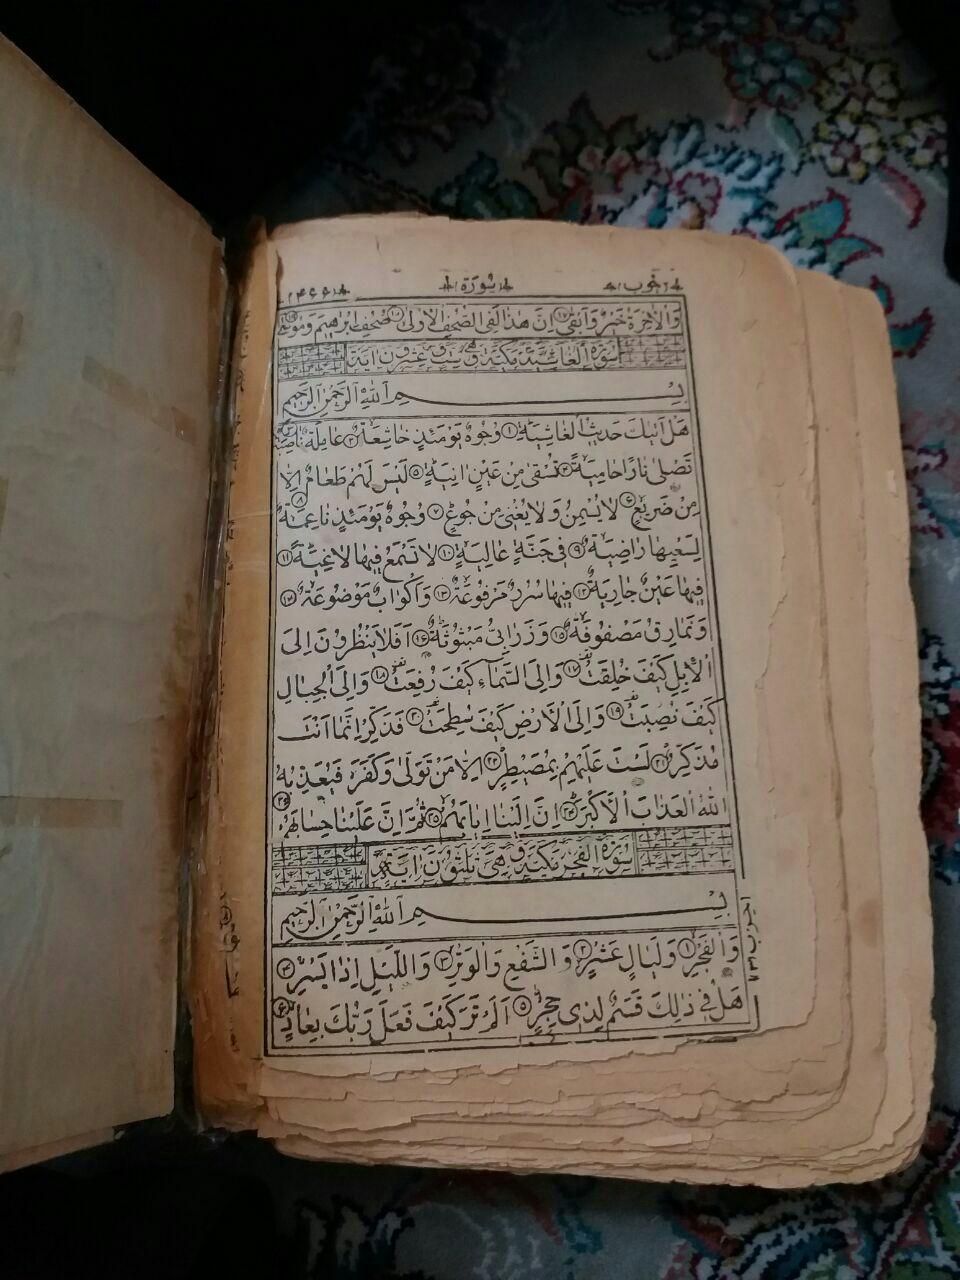 سُورَة
وَالْاٰخِرَةُ خَيْرٌ وَاَبْقٰى ۱۷ اِنَّ هٰذَا لَفِى الصُّحُفِ الْاُولٰى ۱۸ صُحُفِ اِبْرٰهِيمَ وَمُوسٰى ۱۹
سُورَةُ الْغَاشِيَةِ مَكِّيَّةٌ وَهِىَ سِتٌّ وَعِشْرُونَ اٰيَةً
بِسْمِ اللّٰهِ الرَّحْمٰنِ الرَّحِيمِ
هَلْ اَتٰيكَ حَدِيثُ الْغَاشِيَةِ ۱ وُجُوهٌ يَوْمَئِذٍ خَاشِعَةٌ ۲ عَامِلَةٌ نَاصِبَةٌ ۳
تَصْلٰى نَارًا حَامِيَةً ۴ تُسْقٰى مِنْ عَيْنٍ اٰنِيَةٍ ۵ لَيْسَ لَهُمْ طَعَامٌ اِلَّا
مِنْ ضَرِيعٍ ۶ لَا يُسْمِنُ وَلَا يُغْنِى مِنْ جُوعٍ ۷ وُجُوهٌ يَوْمَئِذٍ نَاعِمَةٌ ۸
لِسَعْيِهَا رَاضِيَةٌ ۹ فِى جَنَّةٍ عَالِيَةٍ ۱۰ لَا تَسْمَعُ فِيهَا لَاغِيَةً ۱۱
فِيهَا عَيْنٌ جَارِيَةٌ ۱۲ فِيهَا سُرُرٌ مَرْفُوعَةٌ ۱۳ وَاَكْوَابٌ مَوْضُوعَةٌ ۱۴
وَنَمَارِقُ مَصْفُوفَةٌ ۱۵ وَزَرَابِىُّ مَبْثُوثَةٌ ۱۶ اَفَلَا يَنْظُرُونَ اِلَى
الْاِبِلِ كَيْفَ خُلِقَتْ ۱۷ وَاِلَى السَّمَآءِ كَيْفَ رُفِعَتْ ۱۸ وَاِلَى الْجِبَالِ
كَيْفَ نُصِبَتْ ۱۹ وَاِلَى الْاَرْضِ كَيْفَ سُطِحَتْ ۲۰ فَذَكِّرْ اِنَّمَا اَنْتَ
مُذَكِّرٌ ۲۱ لَسْتَ عَلَيْهِمْ بِمُصَيْطِرٍ ۲۲ اِلَّا مَنْ تَوَلّٰى وَكَفَرَ ۲۳ فَيُعَذِّبُهُ
اللّٰهُ الْعَذَابَ الْاَكْبَرَ ۲۴ اِنَّ اِلَيْنَا اِيَابَهُمْ ۲۵ ثُمَّ اِنَّ عَلَيْنَا حِسَابَهُمْ
سُورَةُ الْفَجْرِ مَكِّيَّةٌ وَهِىَ ثَلٰثُونَ اٰيَةً
بِسْمِ اللّٰهِ الرَّحْمٰنِ الرَّحِيمِ
وَالْفَجْرِ ۱ وَلَيَالٍ عَشْرٍ ۲ وَالشَّفْعِ وَالْوَتْرِ ۳ وَاللَّيْلِ اِذَا يَسْرِ ۴
هَلْ فِى ذٰلِكَ قَسَمٌ لِذِى حِجْرٍ ۵ اَلَمْ تَرَ كَيْفَ فَعَلَ رَبُّكَ بِعَادٍ ۶